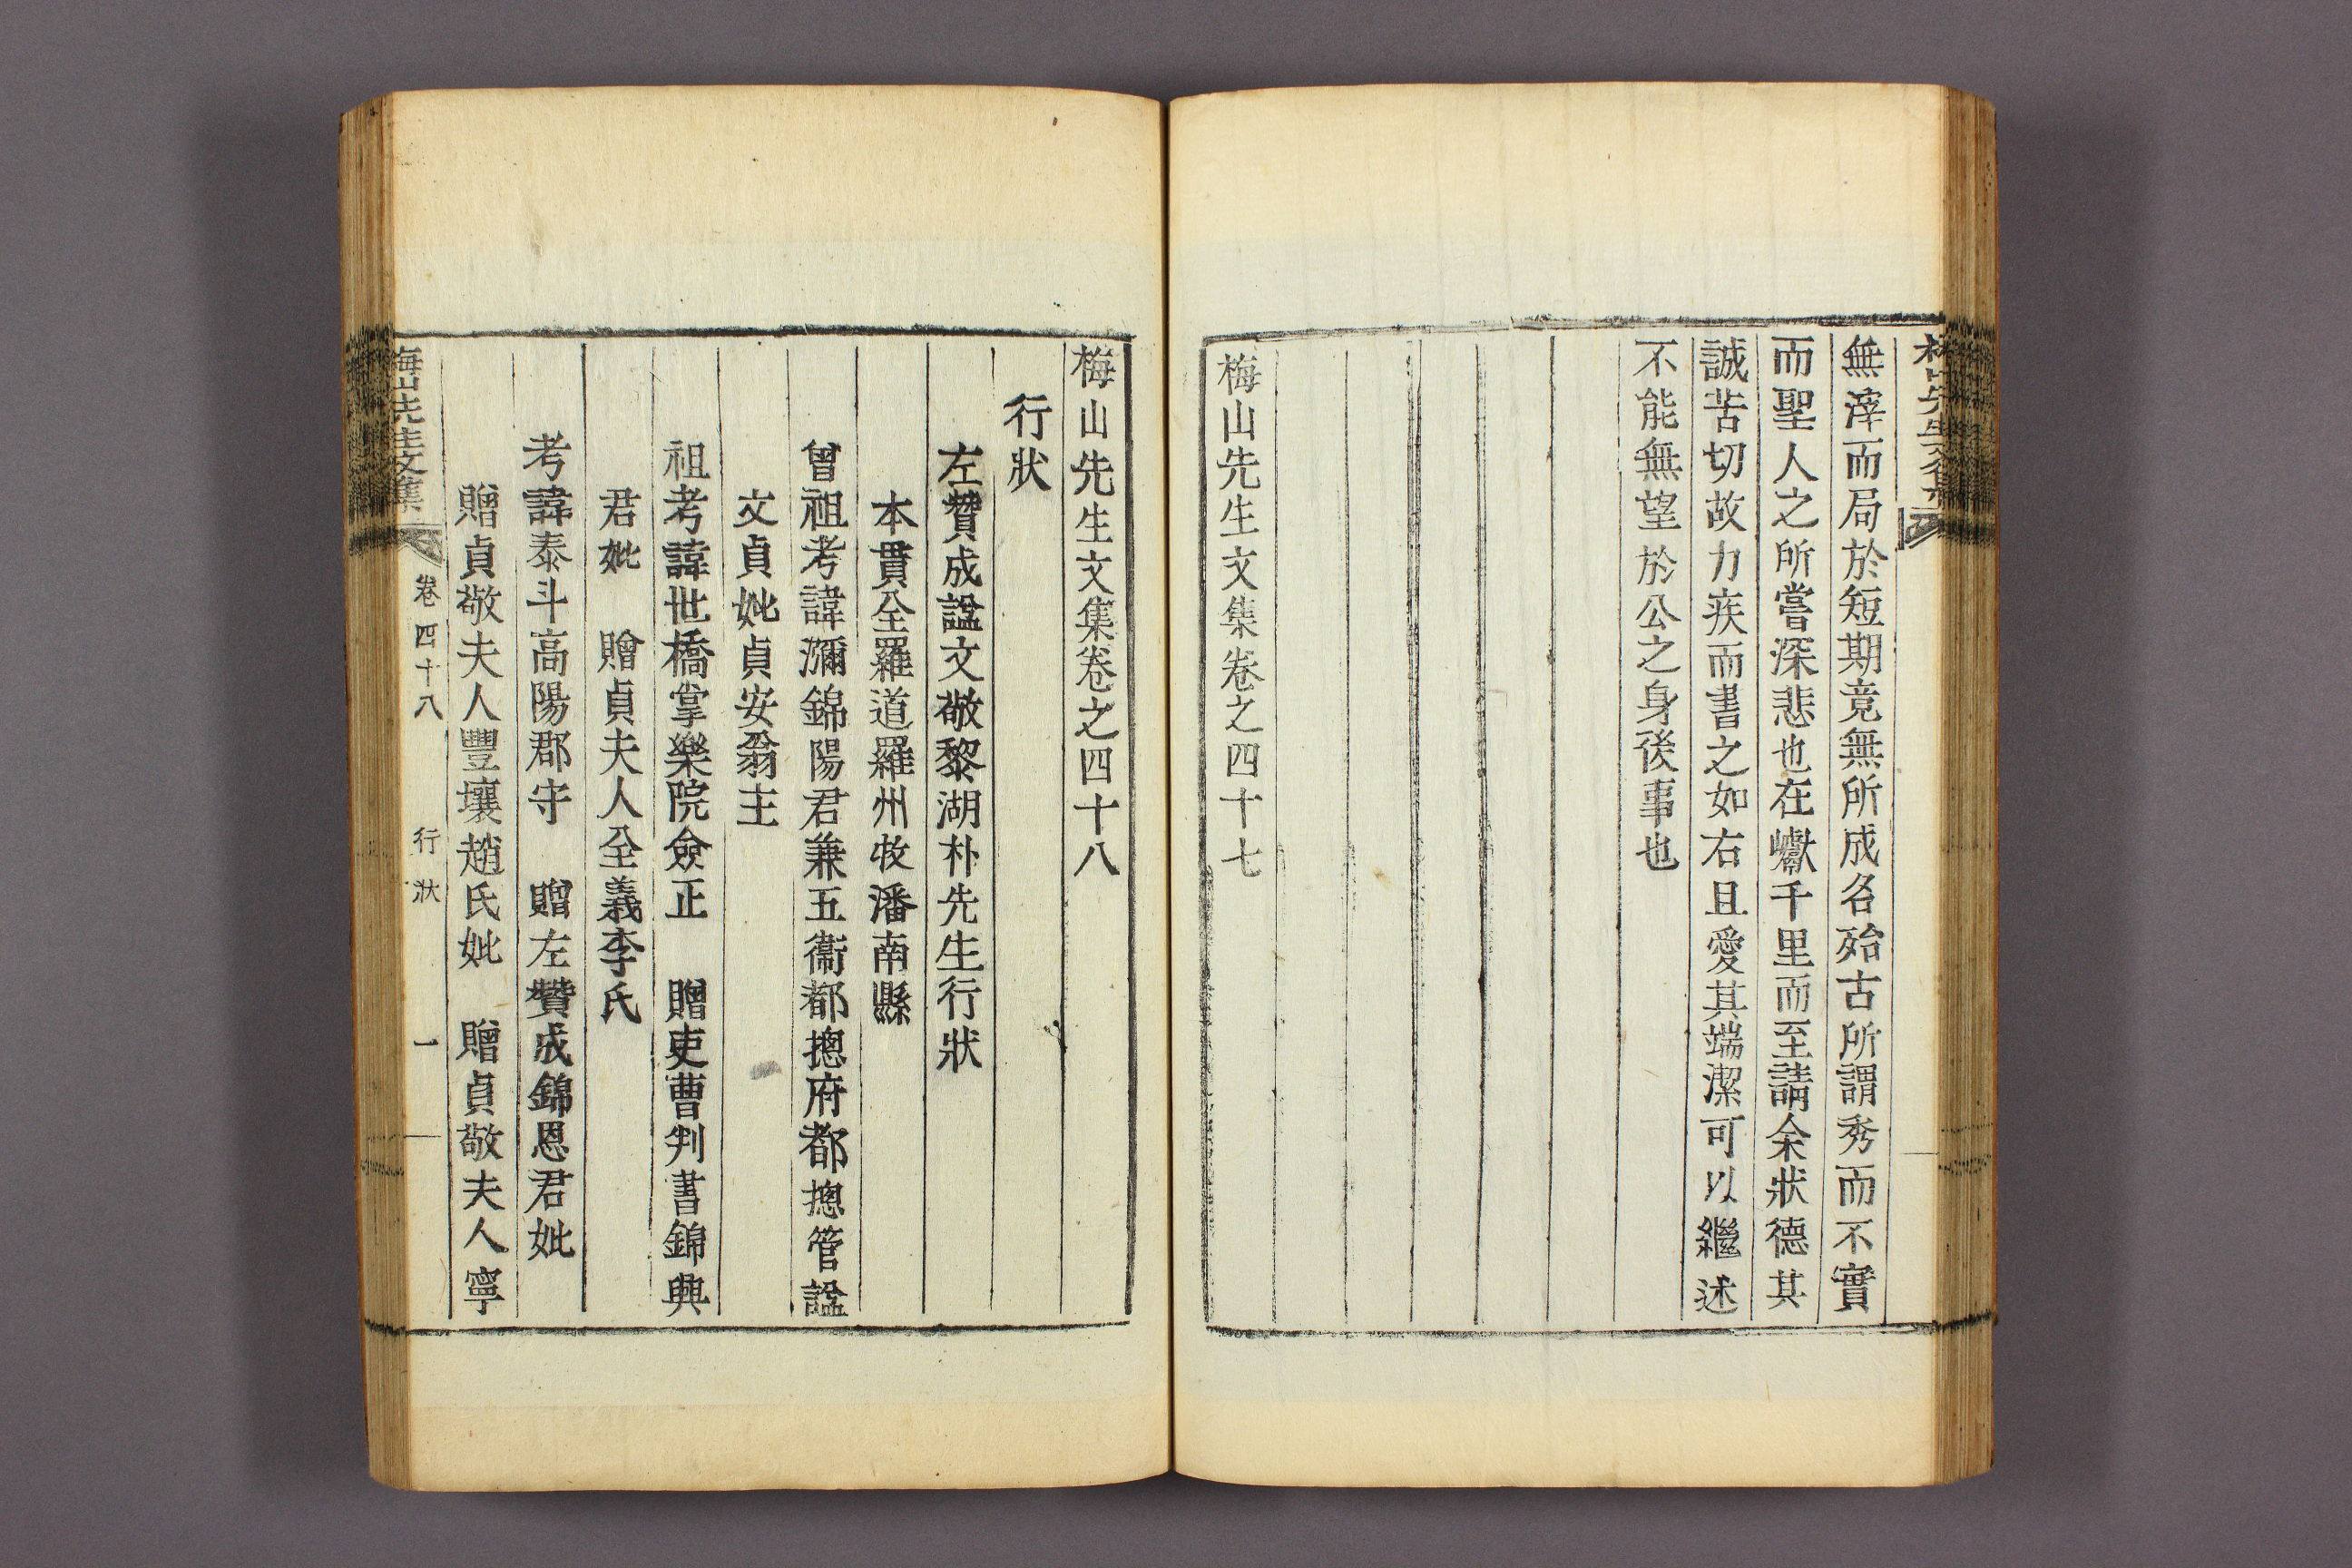 無滓而局於短期竟無所成名殆古所謂秀而不實
而聖人之所嘗深悲也在巘千里而至請余狀德其
誠苦切故力疾而書之如右且愛其端潔可以繼述
不能無望於公之身後事也
梅山先生文集卷之四十七
梅山先生文集卷之四十八
行狀
左贊成謚文敬黎湖朴先生行狀
本貫全羅道羅州牧潘南縣
曾祖考諱瀰錦陽君兼五衞都摠府都摠管謚
文貞妣貞安翁主
祖考諱世橋掌樂院僉正　贈吏曹判書錦興
君妣　贈貞夫人全義李氏
考諱泰斗高陽郡守　贈左贊成錦恩君妣
贈貞敬夫人豐壤趙氏妣　贈貞敬夫人寧
梅山先生文集　卷四十八　行狀　一